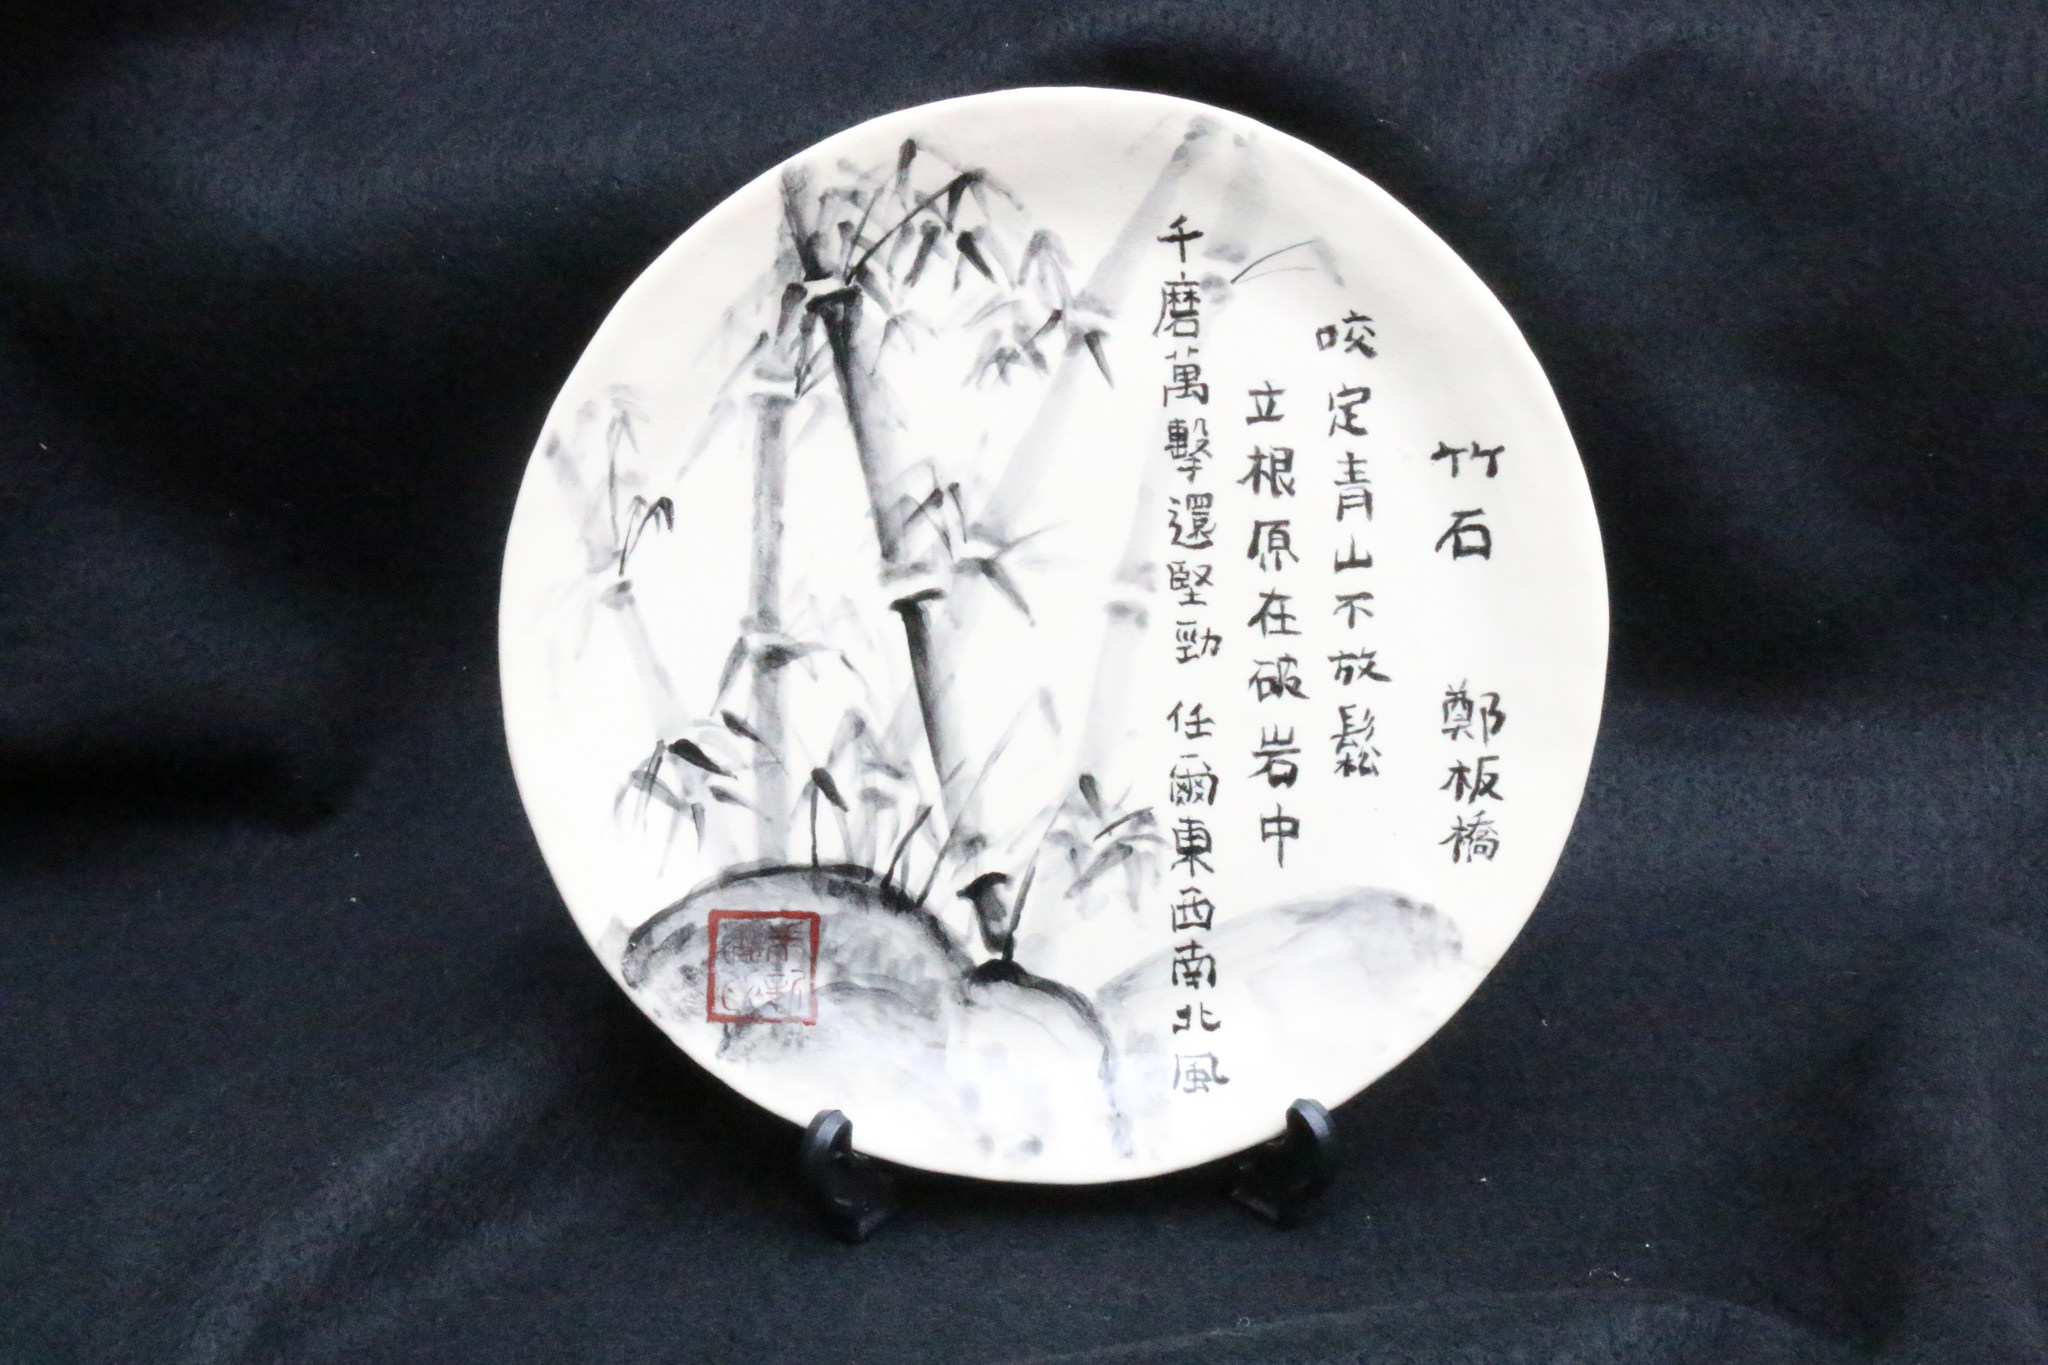 竹石 鄭板橋
咬定青山不放鬆
立根原在破岩中
千磨萬擊還堅勁 任爾東西南北風